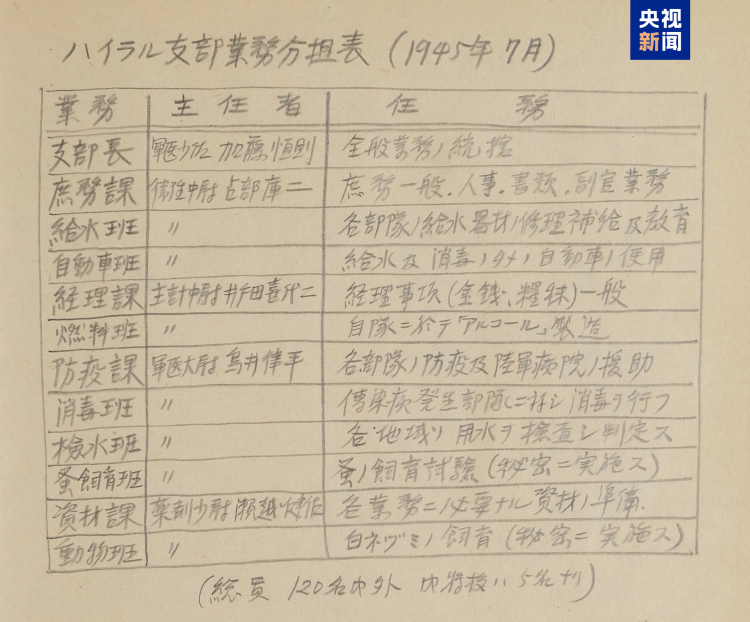 央视
新闻
ハイラル支部業務分担表 (1945年7月)
業務 主任者 任務
支部長 軍医少佐 加藤恒則 全般業務ノ統括
庶務課 衛生中尉 占部庫二 庶務一般.人事.書類.副官業務
給水班 〃 各部隊ノ給水器材ノ修理補給及教育
自動車班 〃 給水及消毒ノタメノ自動車ノ使用
経理課 主計中尉 井田喜代二 経理事項(金銭、糧秣)一般
燃料班 〃 自隊ニ於テ「アルコール」製造
防疫課 軍医大尉 鳥井律平 各部隊ノ防疫及陸軍病院ノ援助
消毒班 〃 傳染病発生部隊ニ対シ消毒ヲ行フ
檢水班 〃 各地域ノ用水ヲ検査シ判定ス
蚤飼育班 〃 蚤ノ飼育試験(秘密ニ実施ス)
資材課 薬剤少尉 瀬越健 各業務ニ必要ナル資材ノ準備.
動物班 〃 白ネヅミノ飼育(秘密ニ実施ス)
(総員 120名内外 内将校ハ5名ナリ)